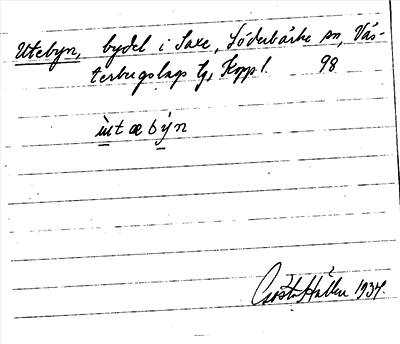 Utebyn, bydel i Saxe, Söderbärke sn, Väs-
terbergslags tg, Kppl. 98
ùtæbýn
Gösta Hallén 1934.